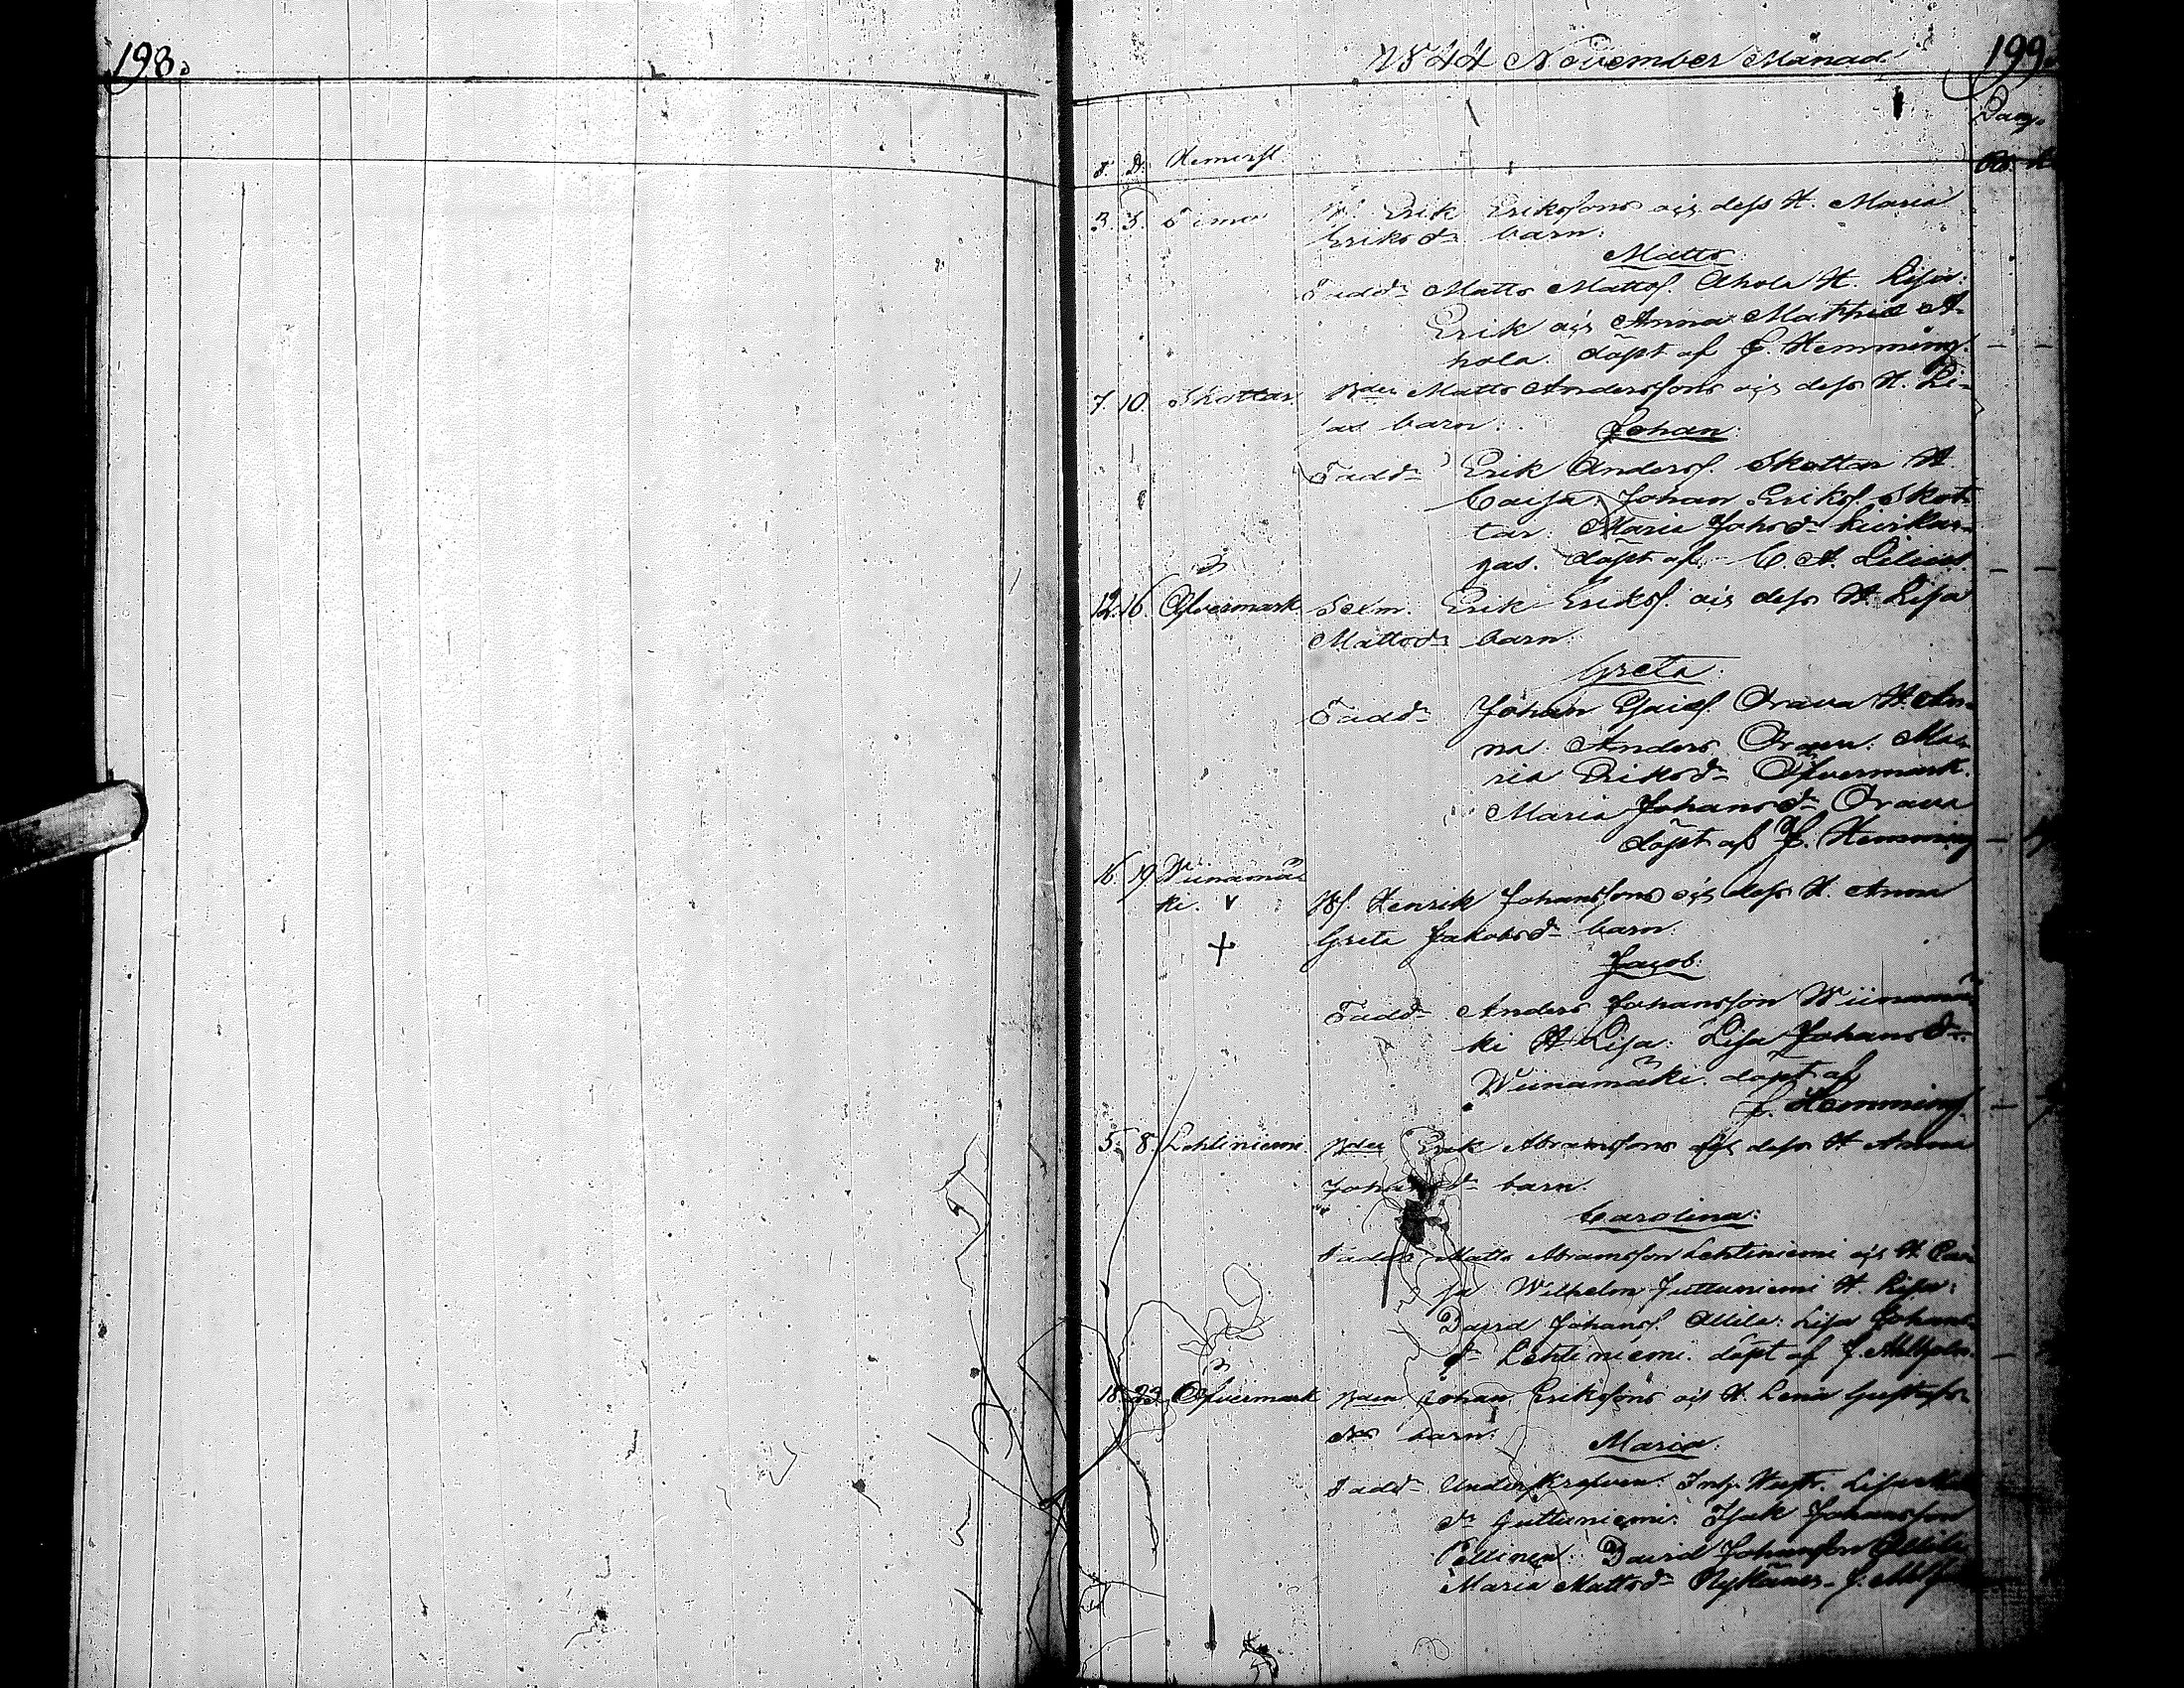 198.
1844 November Månad. 199.
F. D. Hemvist.
3. 5. Erik Erikssons och dess H. Maria
Eriksdr barn:
Matts:
Fadd. Matts Mattss. Ahola H. Lisa:
Erik och Anna Matthsd. A-
hola. döpt af F. Hemming. –
7. 10. Skottar. Bden Matts Anderssons och dess H. Li-
sas barn: Johan:
Fadd. Erik Anderss. Skottar H.
Caisa: Johan Erikss. Skot-
tar: Maria Johsdr
döpt af C. A. –
12. 16. Öfvermark Sexm. Erik Erikss. och dess H. Lisa
Mattsdr barn:
Greta:
Fadd. Johan Orava H. An-
na: Anders Orava: Ma-
ria Eriksdr Öfvermark.
Maria Johansdr Orava
döpt af F. Hemming –
16. 19. Wiinamä-
ki. Henrik Johanssons och dess H. Anna
Greta Jakobsdr barn:
Jacob:
Fadd. Anders Johansson Wiinamä-
ki H. Lisa: Lisa Johansdr
Wiinamäki. döpt af
F. Hemming. –
5. 8. Lehtiniemi. Bden Erik Abramssons och dess H. Anna
Johansdr barn:
Carolina:
Fadd. Matts Abramsson Lehtiniemi och H. Cai-
sa: Wilhelm Juttuniemi H. Lisa:
David Johanss. Allila: Lisa Johans-
dr Lehtiniemi. döpt af –
18. 23. Öfvermark Bden Johan Erikssons och H. Lena Gustafs-
drs barn:
Maria:
Fadd. Lisa
dr Juttuniemi: Isak Johansson
Pellinen: David Johansson Allila
Maria Mattsdr Nykänen.